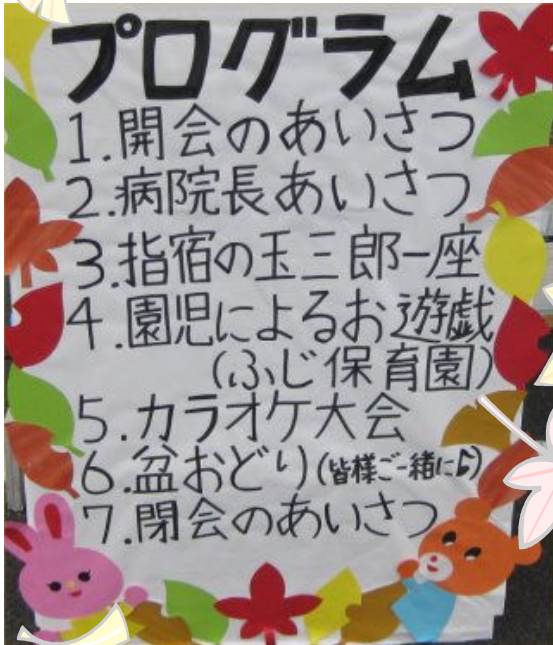 プログラム
1.開会のあいさつ
2.病院長あいさつ
3.指宿の玉三郎一座
4.園児によるお遊戯
(ふじ保育園)
5.カラオケ大会
6.盆おどり(皆様ご一緒に♪)
7.閉会のあいさつ